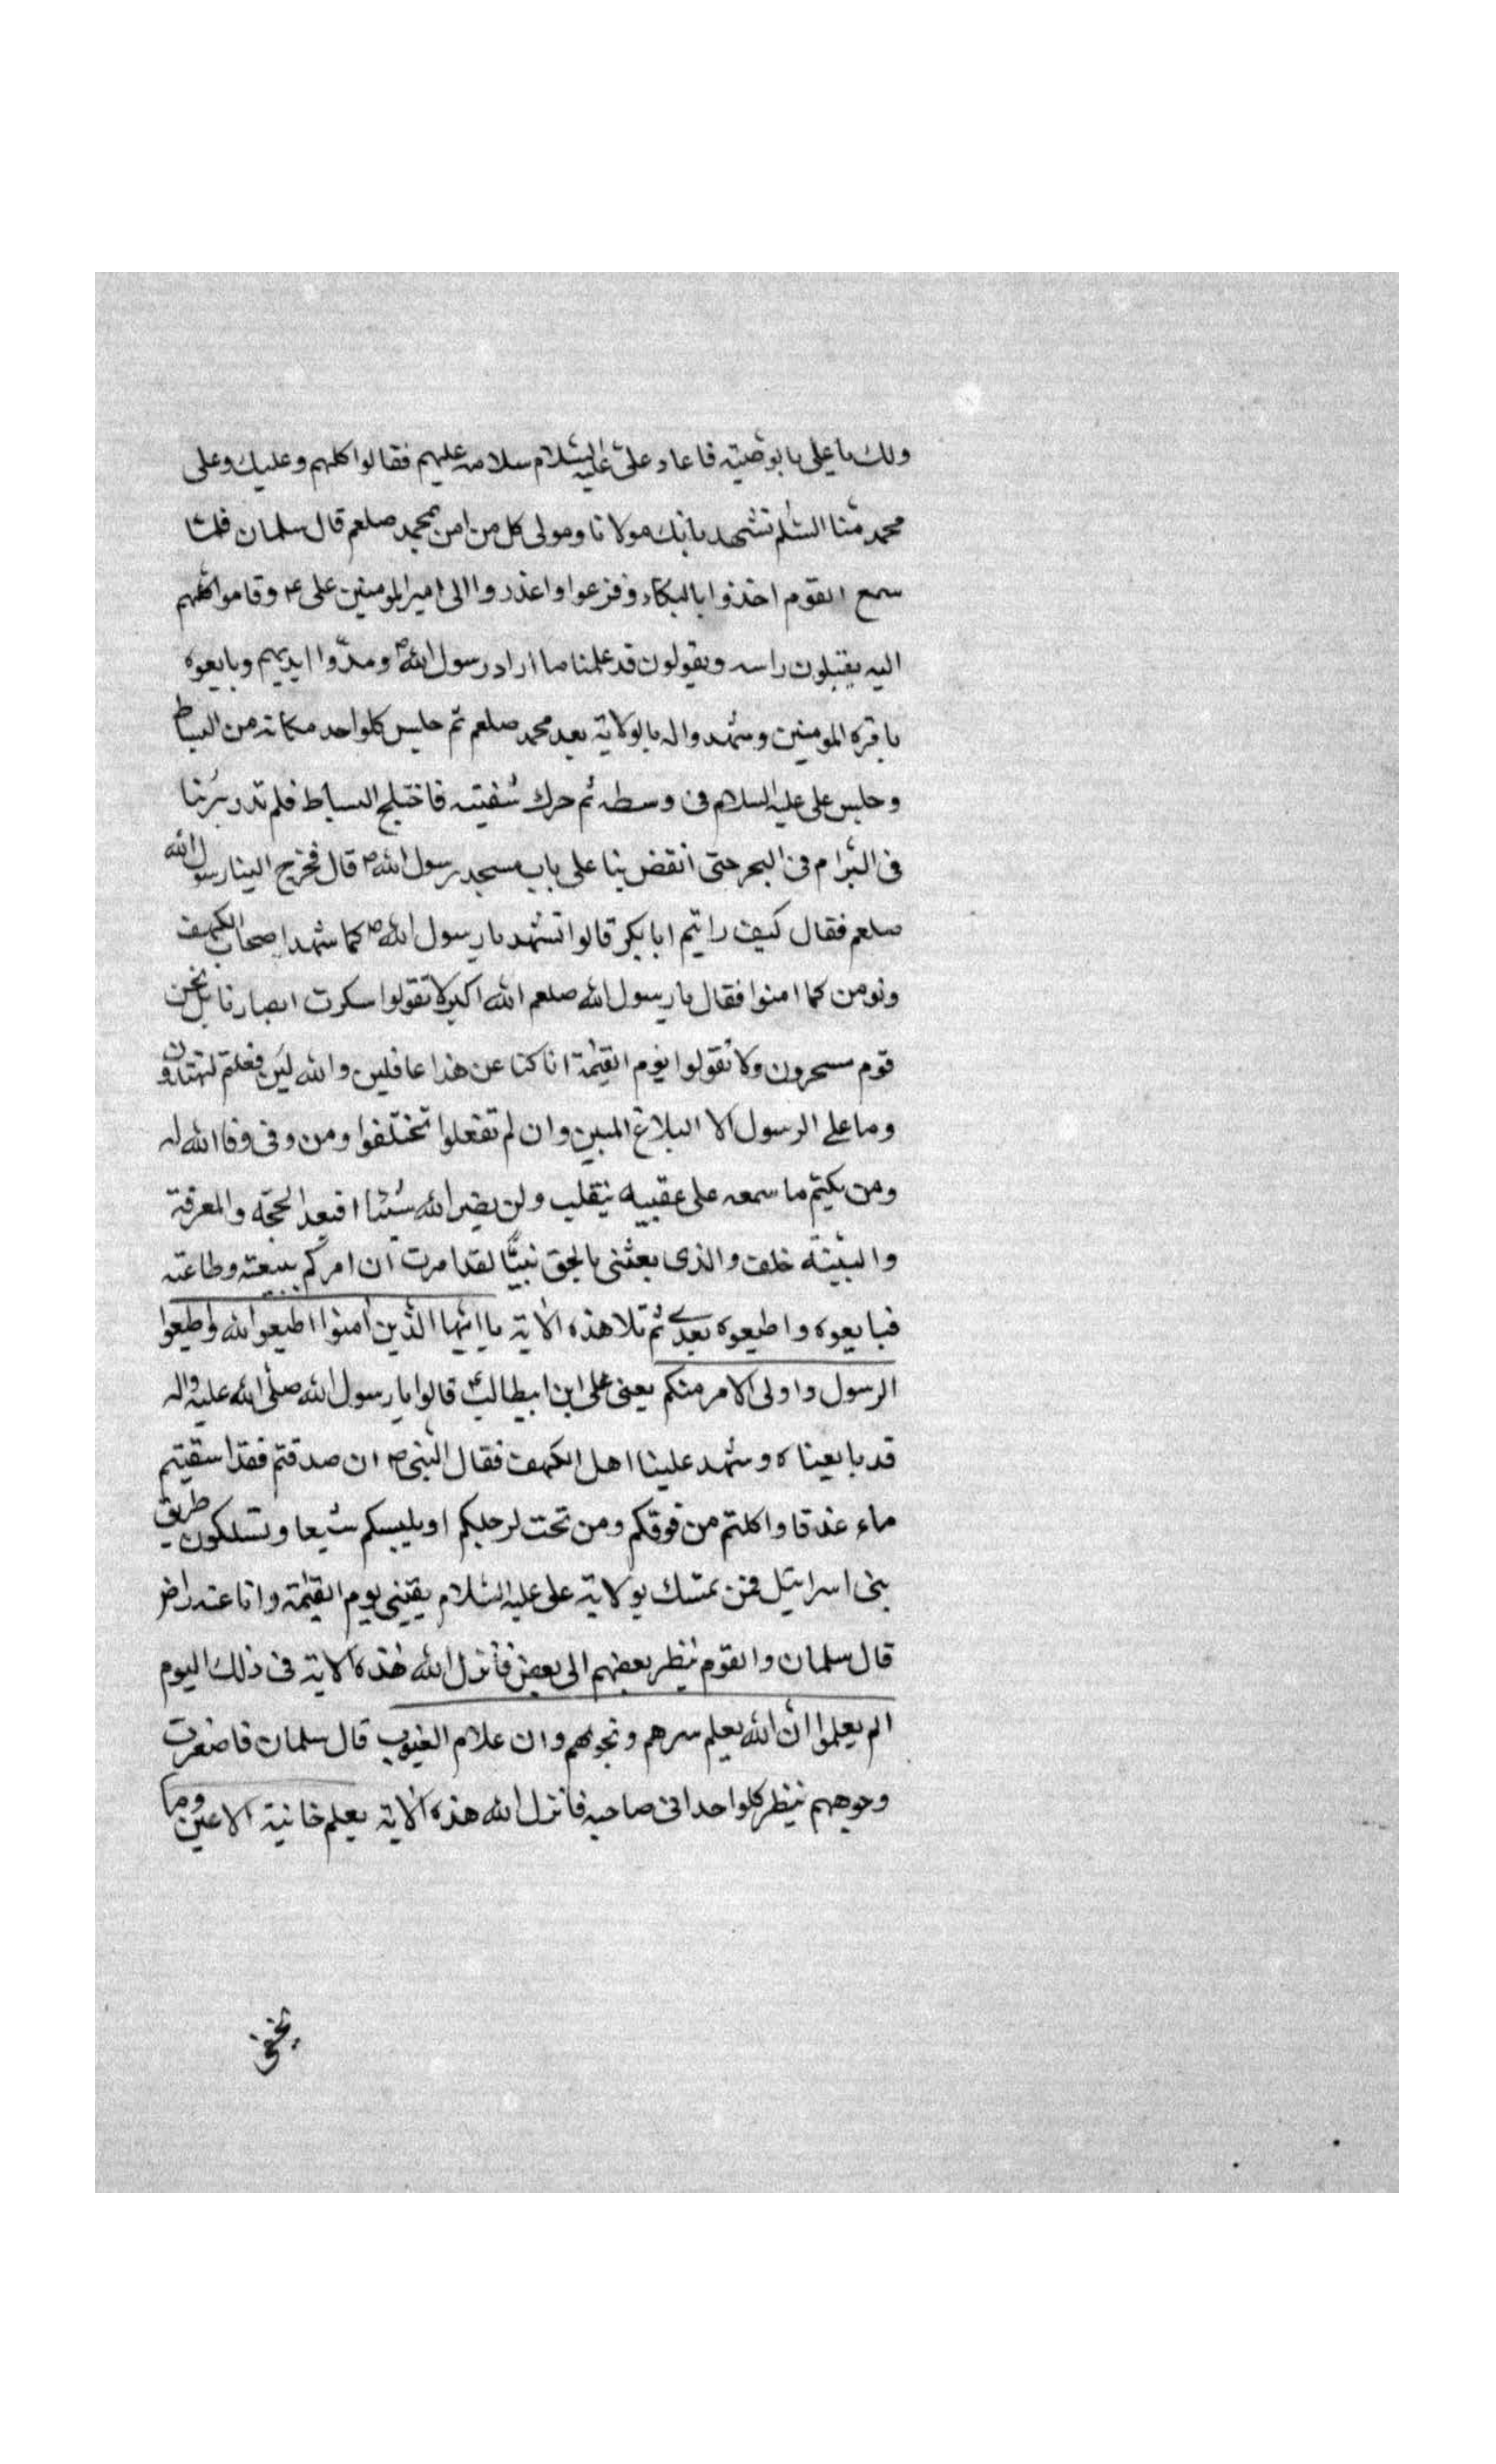 ولك يا على بالوصيته فاعاد على عليه السلام سلامه عليهم فقالوا كلهم وعليك وعلى
محمد منا السلم نشهد بانك مولانا ومولى كل من امن بمحمد صلعم قال سلمان فلما
سمع القوم اخذوا بالبكاء وفزعوا واعذروا الى امير المومنين على ع وقاموا كلهم
اليه يقبلون راسه ويقولون قد علمنا ما اراد رسول الله ص ومدّوا ايديهم وبايعوه
بامرة المومنين وشهدوا له بالولاية بعد محمد صلعم ثم جلس كلواحد مكانه من البساط
وجلس على عليه السلام فى وسطه ثم حرك شفتيه فاختلج البساط فلم ندر بنا
فى البر ام فى البحر حتى انقض بنا على باب مسجد رسول الله ص قال فخرج الينا رسول الله
صلعم فقال كيف رايتم ابا بكر قالوا نشهد يا رسول الله ص كما شهد اصحاب الكهف
ونومن كما امنوا فقال يا رسول الله صلعم الله اكبر لا تقولوا سكرت ابصارنا بل نحن
قوم مسحرون ولا تقولوا يوم القيمة انا كنا عن هذا غافلين والله لين فعلتم لتهتدون
وما على الرسول الا البلاغ المبين وان لم تفعلوا تختلفوا ومن وفى وفا الله له
ومن يكتم ما سمعه على عقبيه ينقلب ولن يضر الله شيئا افبعد الحجّه والمعرفة
والبيّنة خلف والذى بعثنى بالحق نبيًّا لقد امرت ان امركم ببيعته وطاعته
فبايعوه واطيعوه بعدى ثم تلا هذه الاية يا ايّها الّذين امنوا اطيعوا الله واطيعوا
الرسول واولى الامر منكم يعنى على ابن ابيطالب ع قالوا يا رسول الله صلّى الله عليه واله
قد بايعناه وشهد علينا اهل الكهف فقال النبى ص ان صدقتم فقد اسقيتم
ماء غدقا واكلتم من فوقكم ومن تحت ارجلكم او يلبسكم شيعا وتسلكون طريق
بنى اسرايئل فمن تمسّك بولاية على عليه السّلام يقينى يوم القيمة وانا عنه راض
قال سلمان والقوم ينظر بعضهم الى بعض فأنزل الله هذه الاية فى ذلك اليوم
الم يعلموا انّ الله يعلم سرهم ونجويهم وان علام الغيوب قال سلمان فاصفرت
وجوههم ينظر كلواحد الى صاحبه فانزل الله هذه الاية يعلم خائنة الاعين وما
تخفى